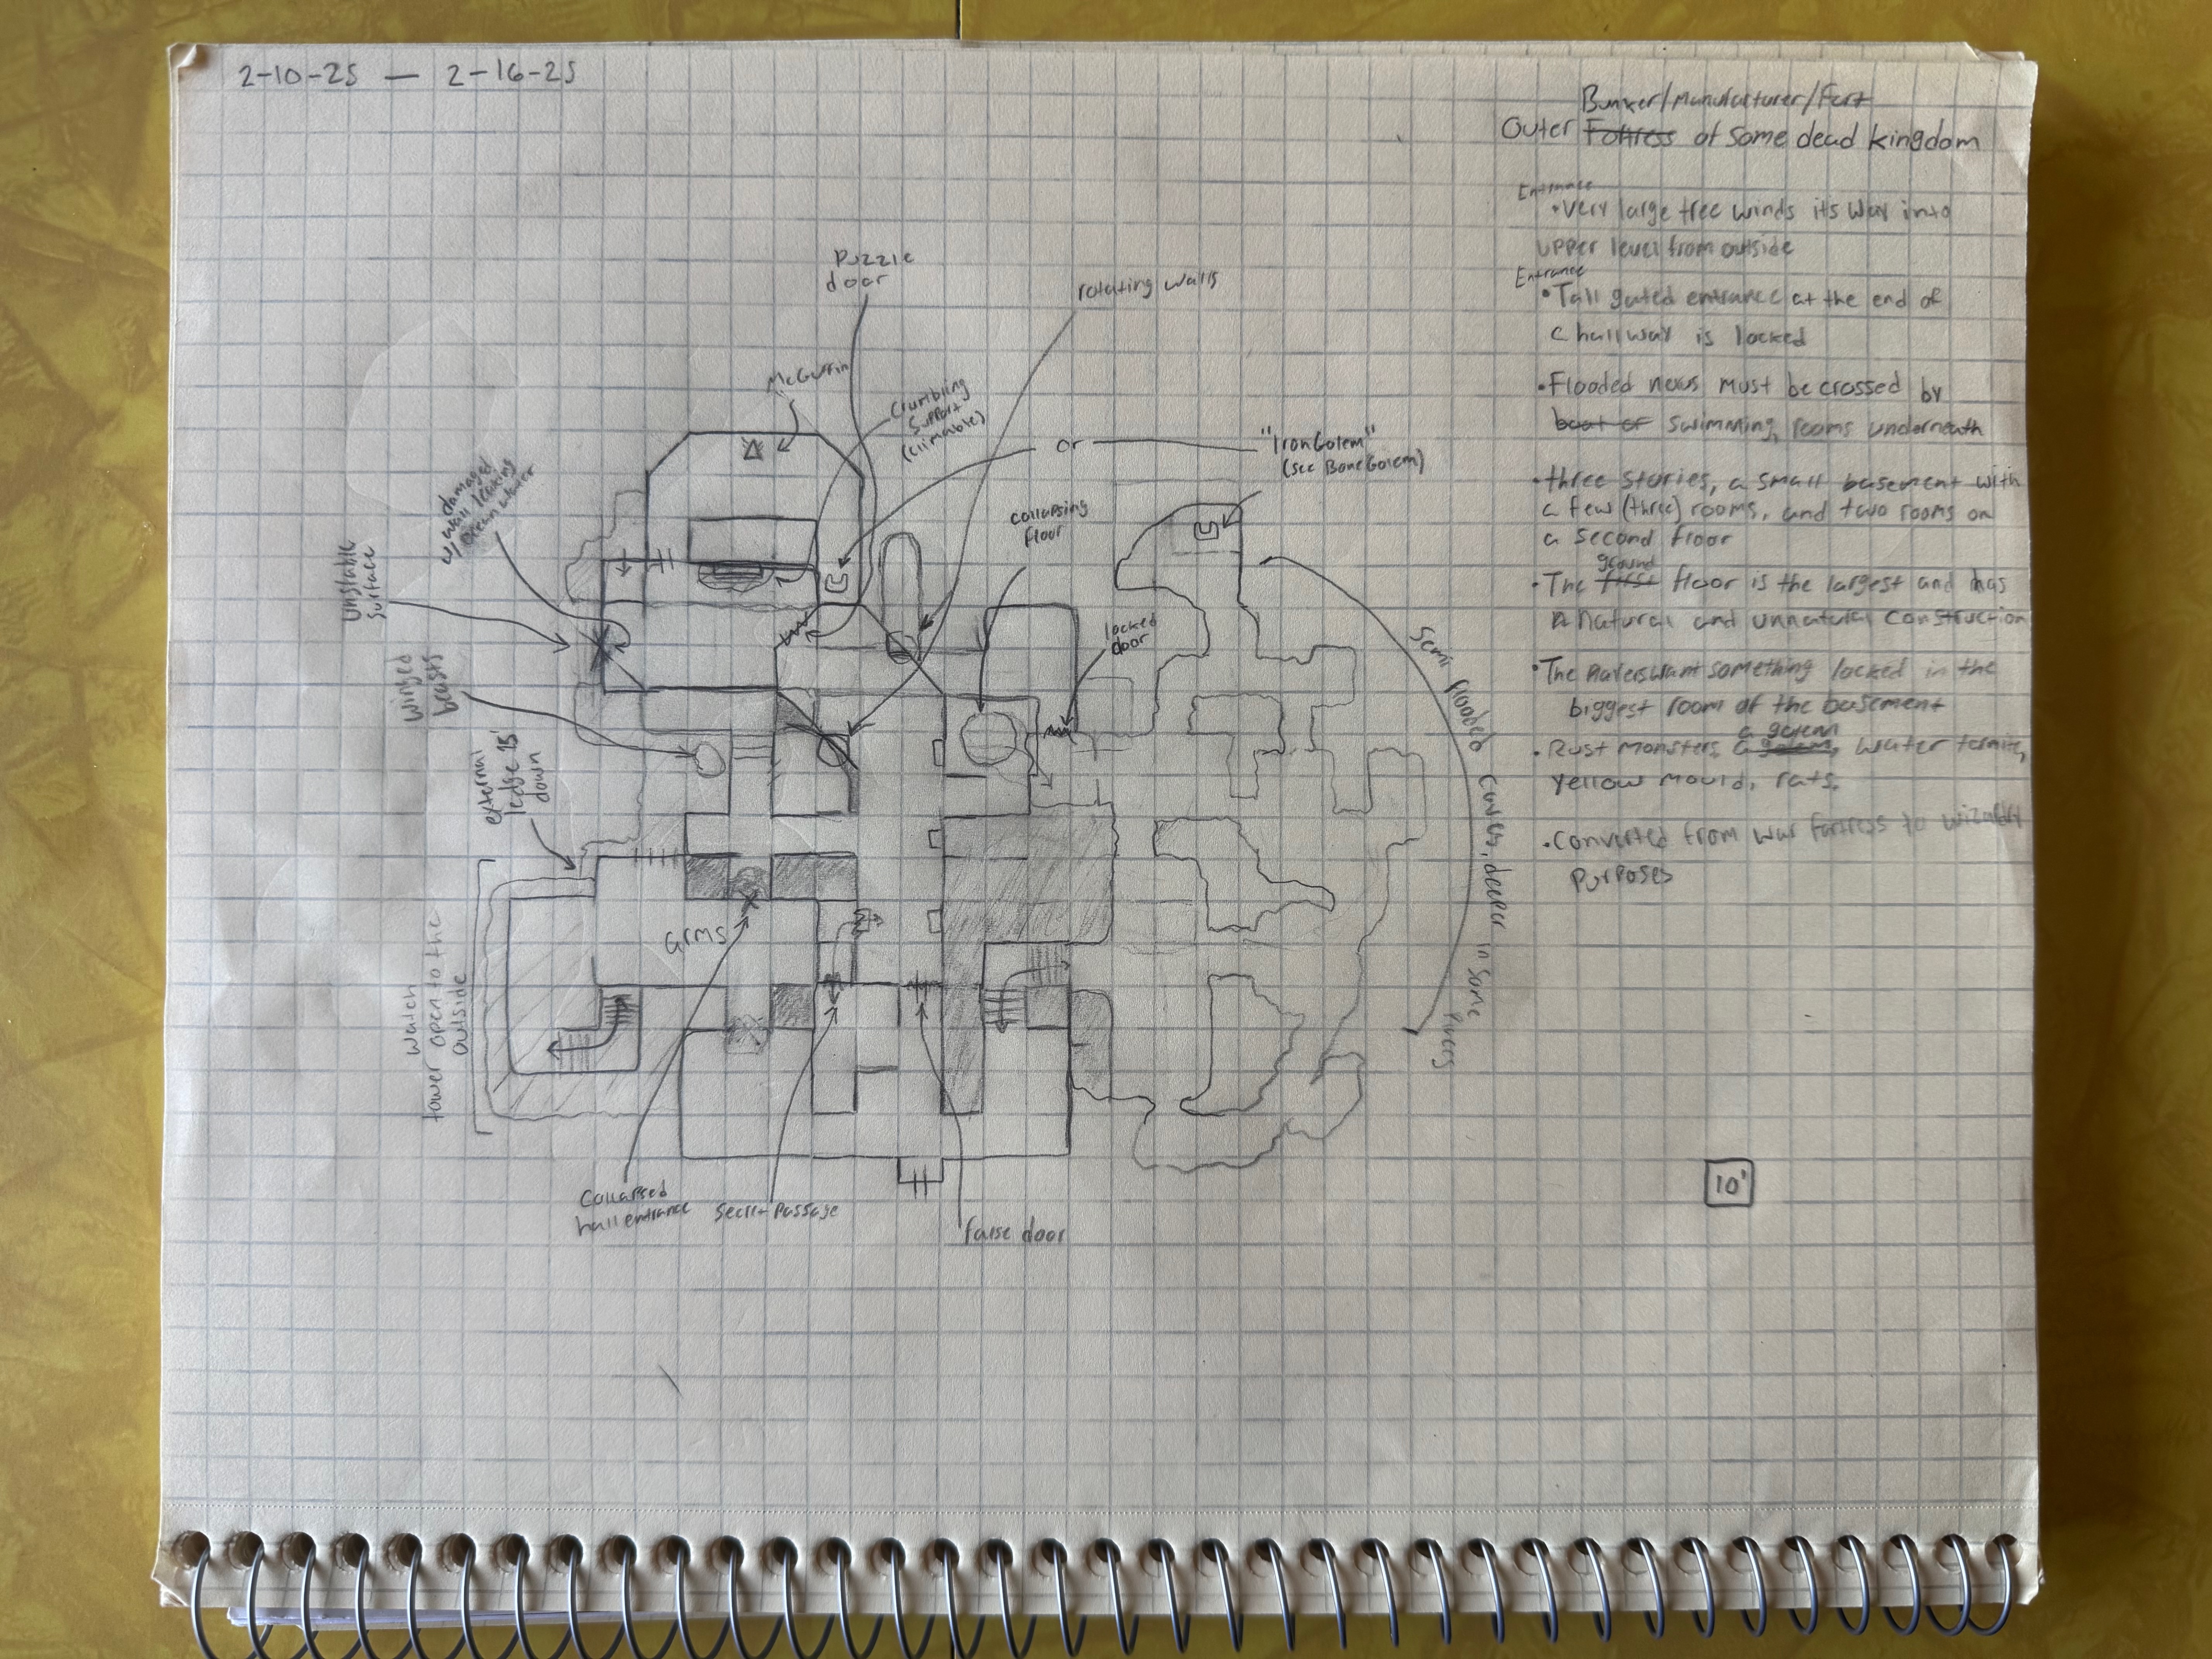 2-10-25 — 2-16-25
Bunker/Manufacturer/Fort
Outer Fortress of some dead kingdom
Entrance
• Very large tree winds its way into
upper level from outside
Entrance
• Tall gated entrance at the end of
a hallway is locked
• Flooded nexus must be crossed by
boat or swimming, rooms underneath
• three stories, a small basement with
a few (three) rooms, and two rooms on
a second floor
ground
• The first floor is the largest and has
natural and unnatural construction
• The players want something locked in the
biggest room of the basement
a golem
• Rust monsters, a golem, water termites,
yellow mould, rats.
• Converted from war fortress to wizardry
purposes
Puzzle
door
rotating walls
McGuffin
Crumbling
Support
(climable)
or
"Iron Golem"
(see Bone Golem)
damaged
wall leaking
clean water
collapsing
floor
unstable
surface
locked
door
winged
beasts
external
ledge 15'
down
semi flooded caves, deeper in some
arms
watch
tower open to the
outside
Collapsed
hall entrance
Secret Passage
false door
10'